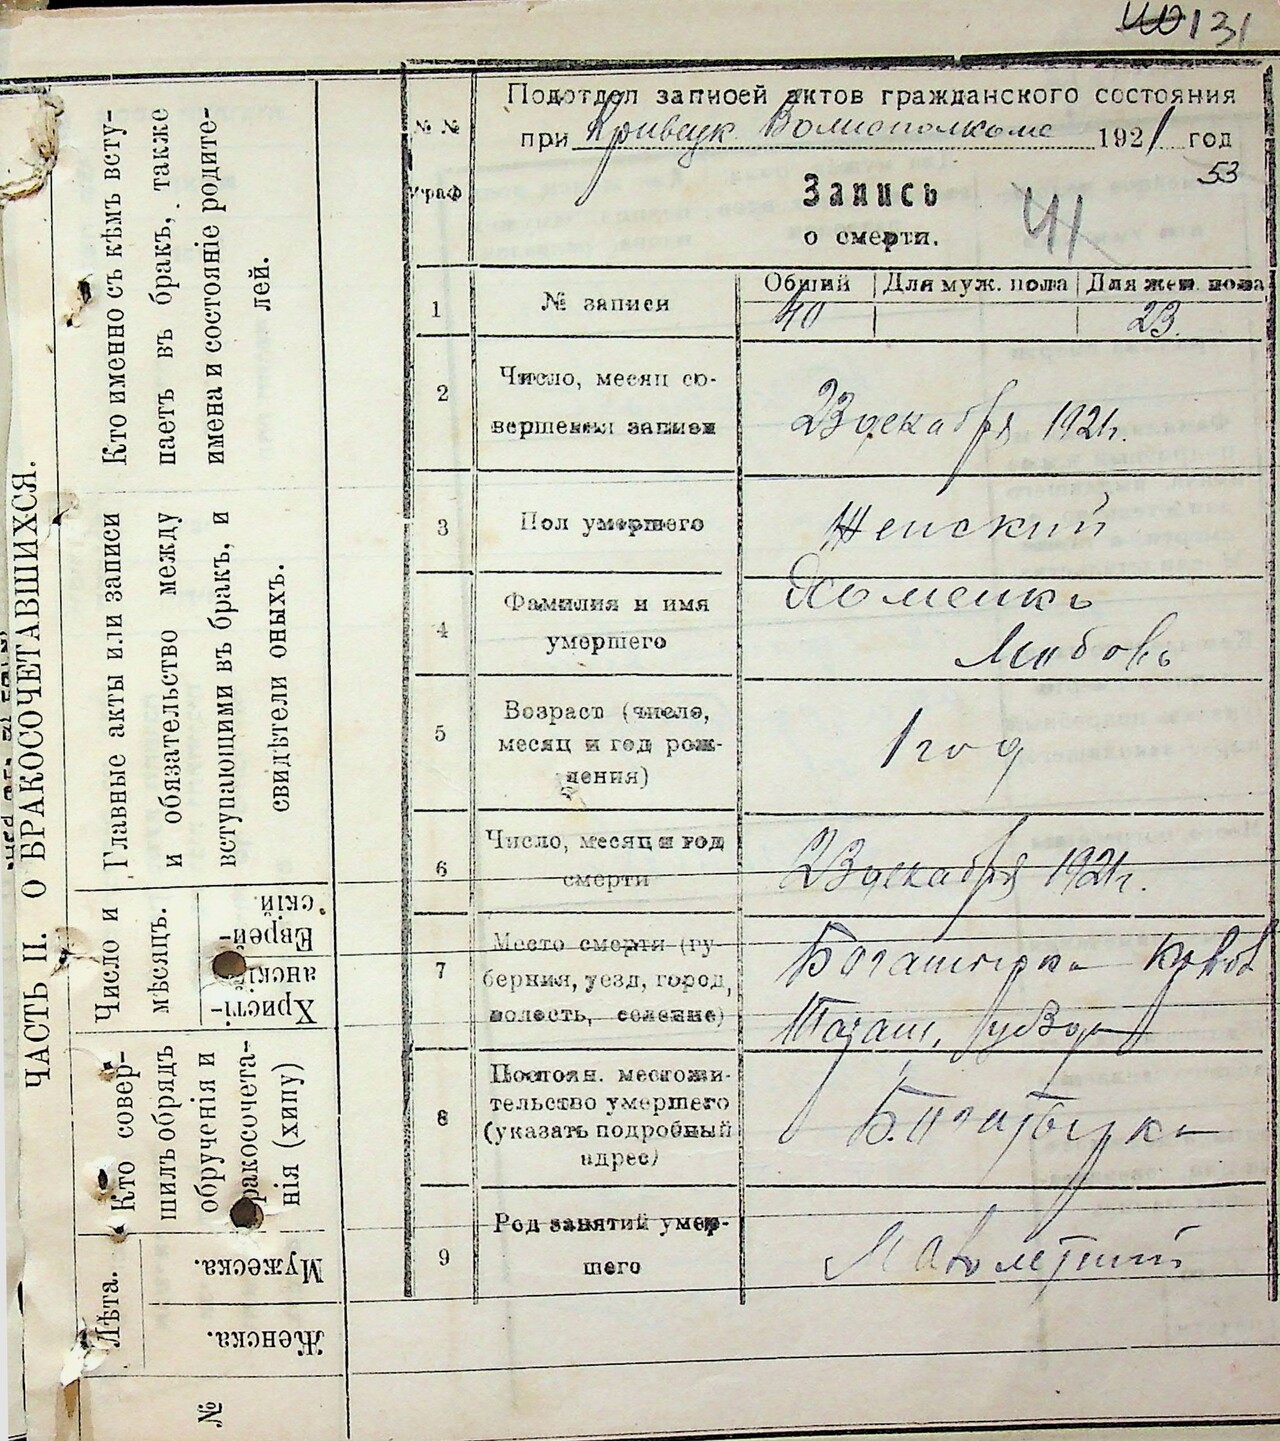 131
Подотдел записей актов гражданского состояния
при Кривецк. Волисполкоме 1921 год
53
№ № граф
Запись
о смерти.
41
1 № записи
Общий Для муж. пола Для жен. пола
40 23.
2 Число, месяц со-
вершения записи
23 декабря 1921 г.
3 Пол умершего
Женский
4 Фамилия и имя
умершего
Любовь
5 Возраст (число,
месяц и год рож-
дения)
1 год
6 Число, месяц и год
смерти
23 декабря 1921 г.
7 Место смерти (гу-
берния, уезд, город,
волость, селение)
8 Постоян. местожи-
тельство умершего
(указать подробный
адрес)
9 Род занятий умер-
шего
Малолетний
ЧАСТЬ II. О БРАКОСОЧЕТАВШИХСЯ.
Кто именно съ кѣмъ всту-
паетъ въ бракъ, также
имена и состояніе родите-
лей.
Главные акты или записи
и обязательство между
вступающими въ бракъ, и
свидѣтели оныхъ.
Число и
мѣсяцъ.
Христі-
анскій
Еврей-
скій.
Кто совер-
шилъ обрядъ
обрученія и
бракосочета-
нія (хипу)
Лѣта.
Мужеска.
Женска.
№